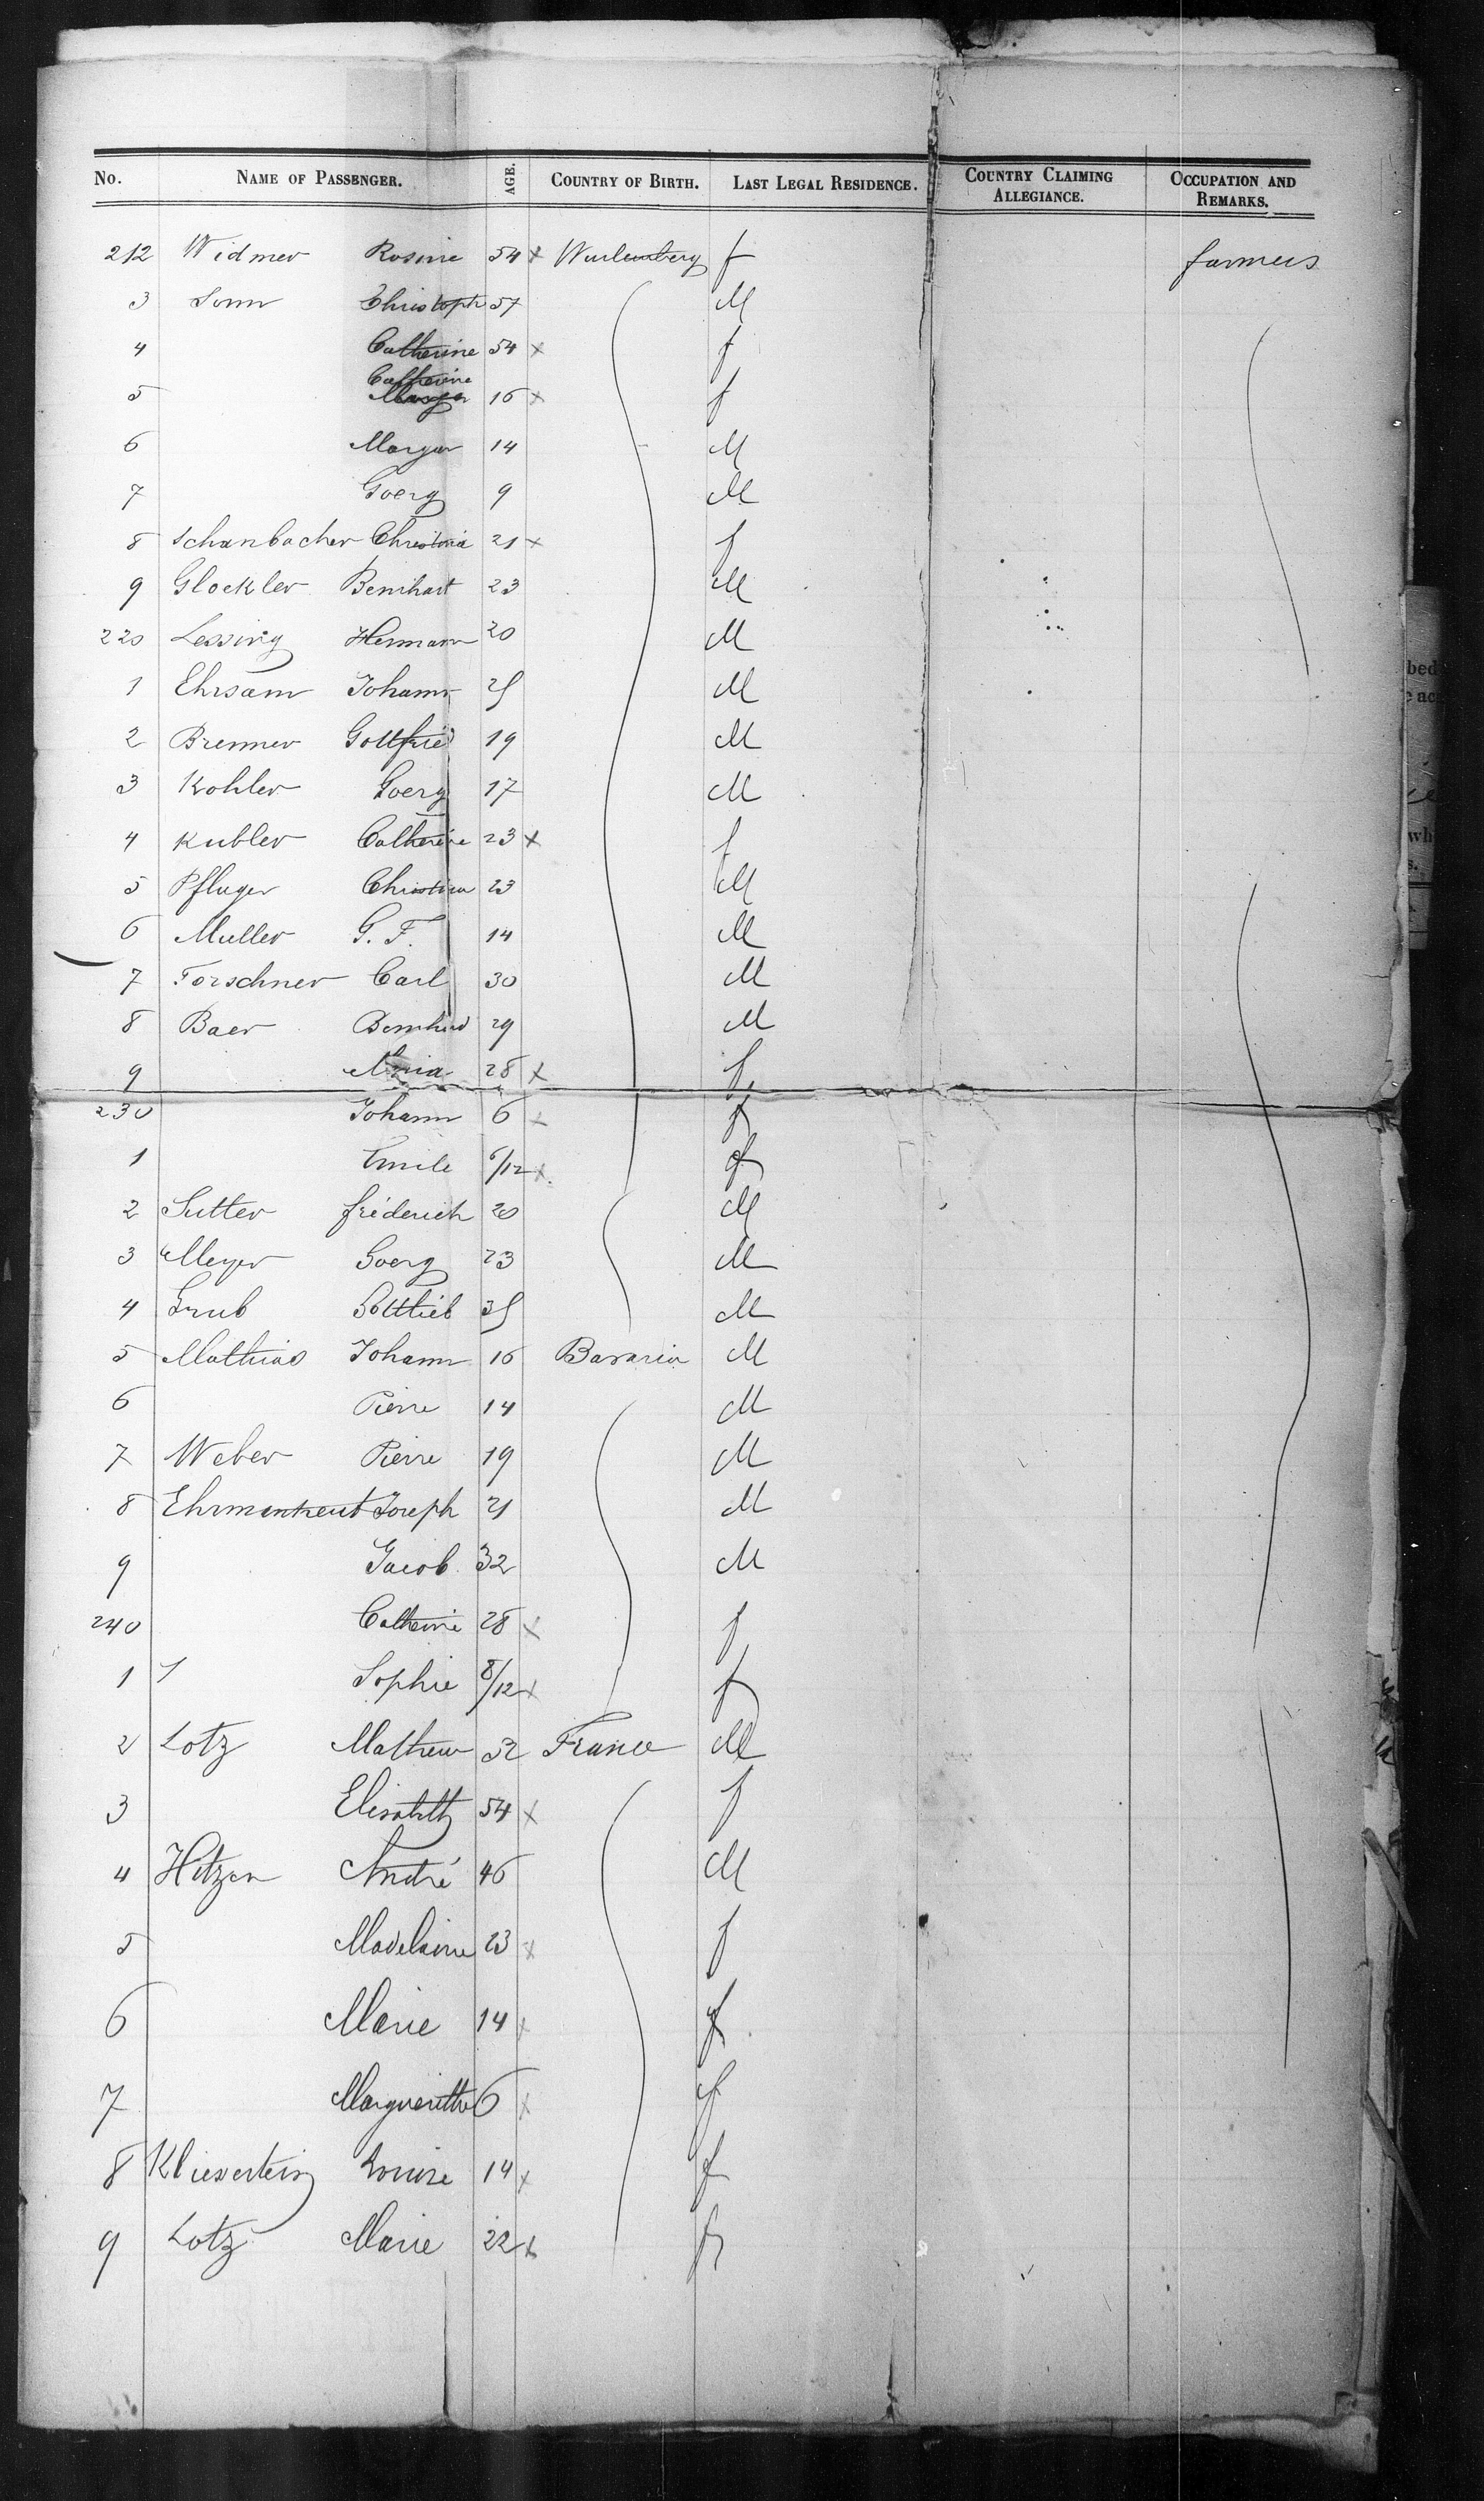 No. NAME OF PASSENGER. AGE. COUNTRY OF BIRTH. LAST LEGAL RESIDENCE. COUNTRY CLAIMING ALLEGIANCE. OCCUPATION AND REMARKS.
212 Widmer Rosine 54 x Wurtemberg f farmers
3 Sonn Christoph 57 M
4 Catherine 54 x f
5 Catherine 16 x f
6 Margar 14 M
7 Goerg 9 M
8 Schanbacher Christina 21 x f
9 Glockler Bernhart 23 M
220 Lessing Hermann 20 M
1 Ehrsam Johann 25 M
2 Brenner Gottfried 19 M
3 Kohler Goerg 17 M
4 Kubler Catherine 23 x f
5 Pfluger Christian 23 M
6 Muller G. F. 14 M
7 Forschner Carl 30 M
8 Baer Bernhard 29 M
9 Maria 28 x f
230 Johann 6 x f
1 Emile 6/12 x f
2 Sutter fréderich 20 M
3 Meyer Goerg 23 M
4 Grub Gottlieb 35 M
5 Mathias Johann 16 Bavaria M
6 Pierre 14 M
7 Weber Pierre 19 M
8 Ehrmantreut Joseph 21 M
9 Jacob 32 M
240 Catherine 28 x f
1 Sophie 8/12 x f
2 Lotz Mathew 52 France M
3 Elisabeth 54 x f
4 Hitzen André 46 M
5 Madelaine 23 x f
6 Marie 14 x f
7 Margueritte 6 x f
8 Louise 14 x f
9 Lotz Marie 22 x f